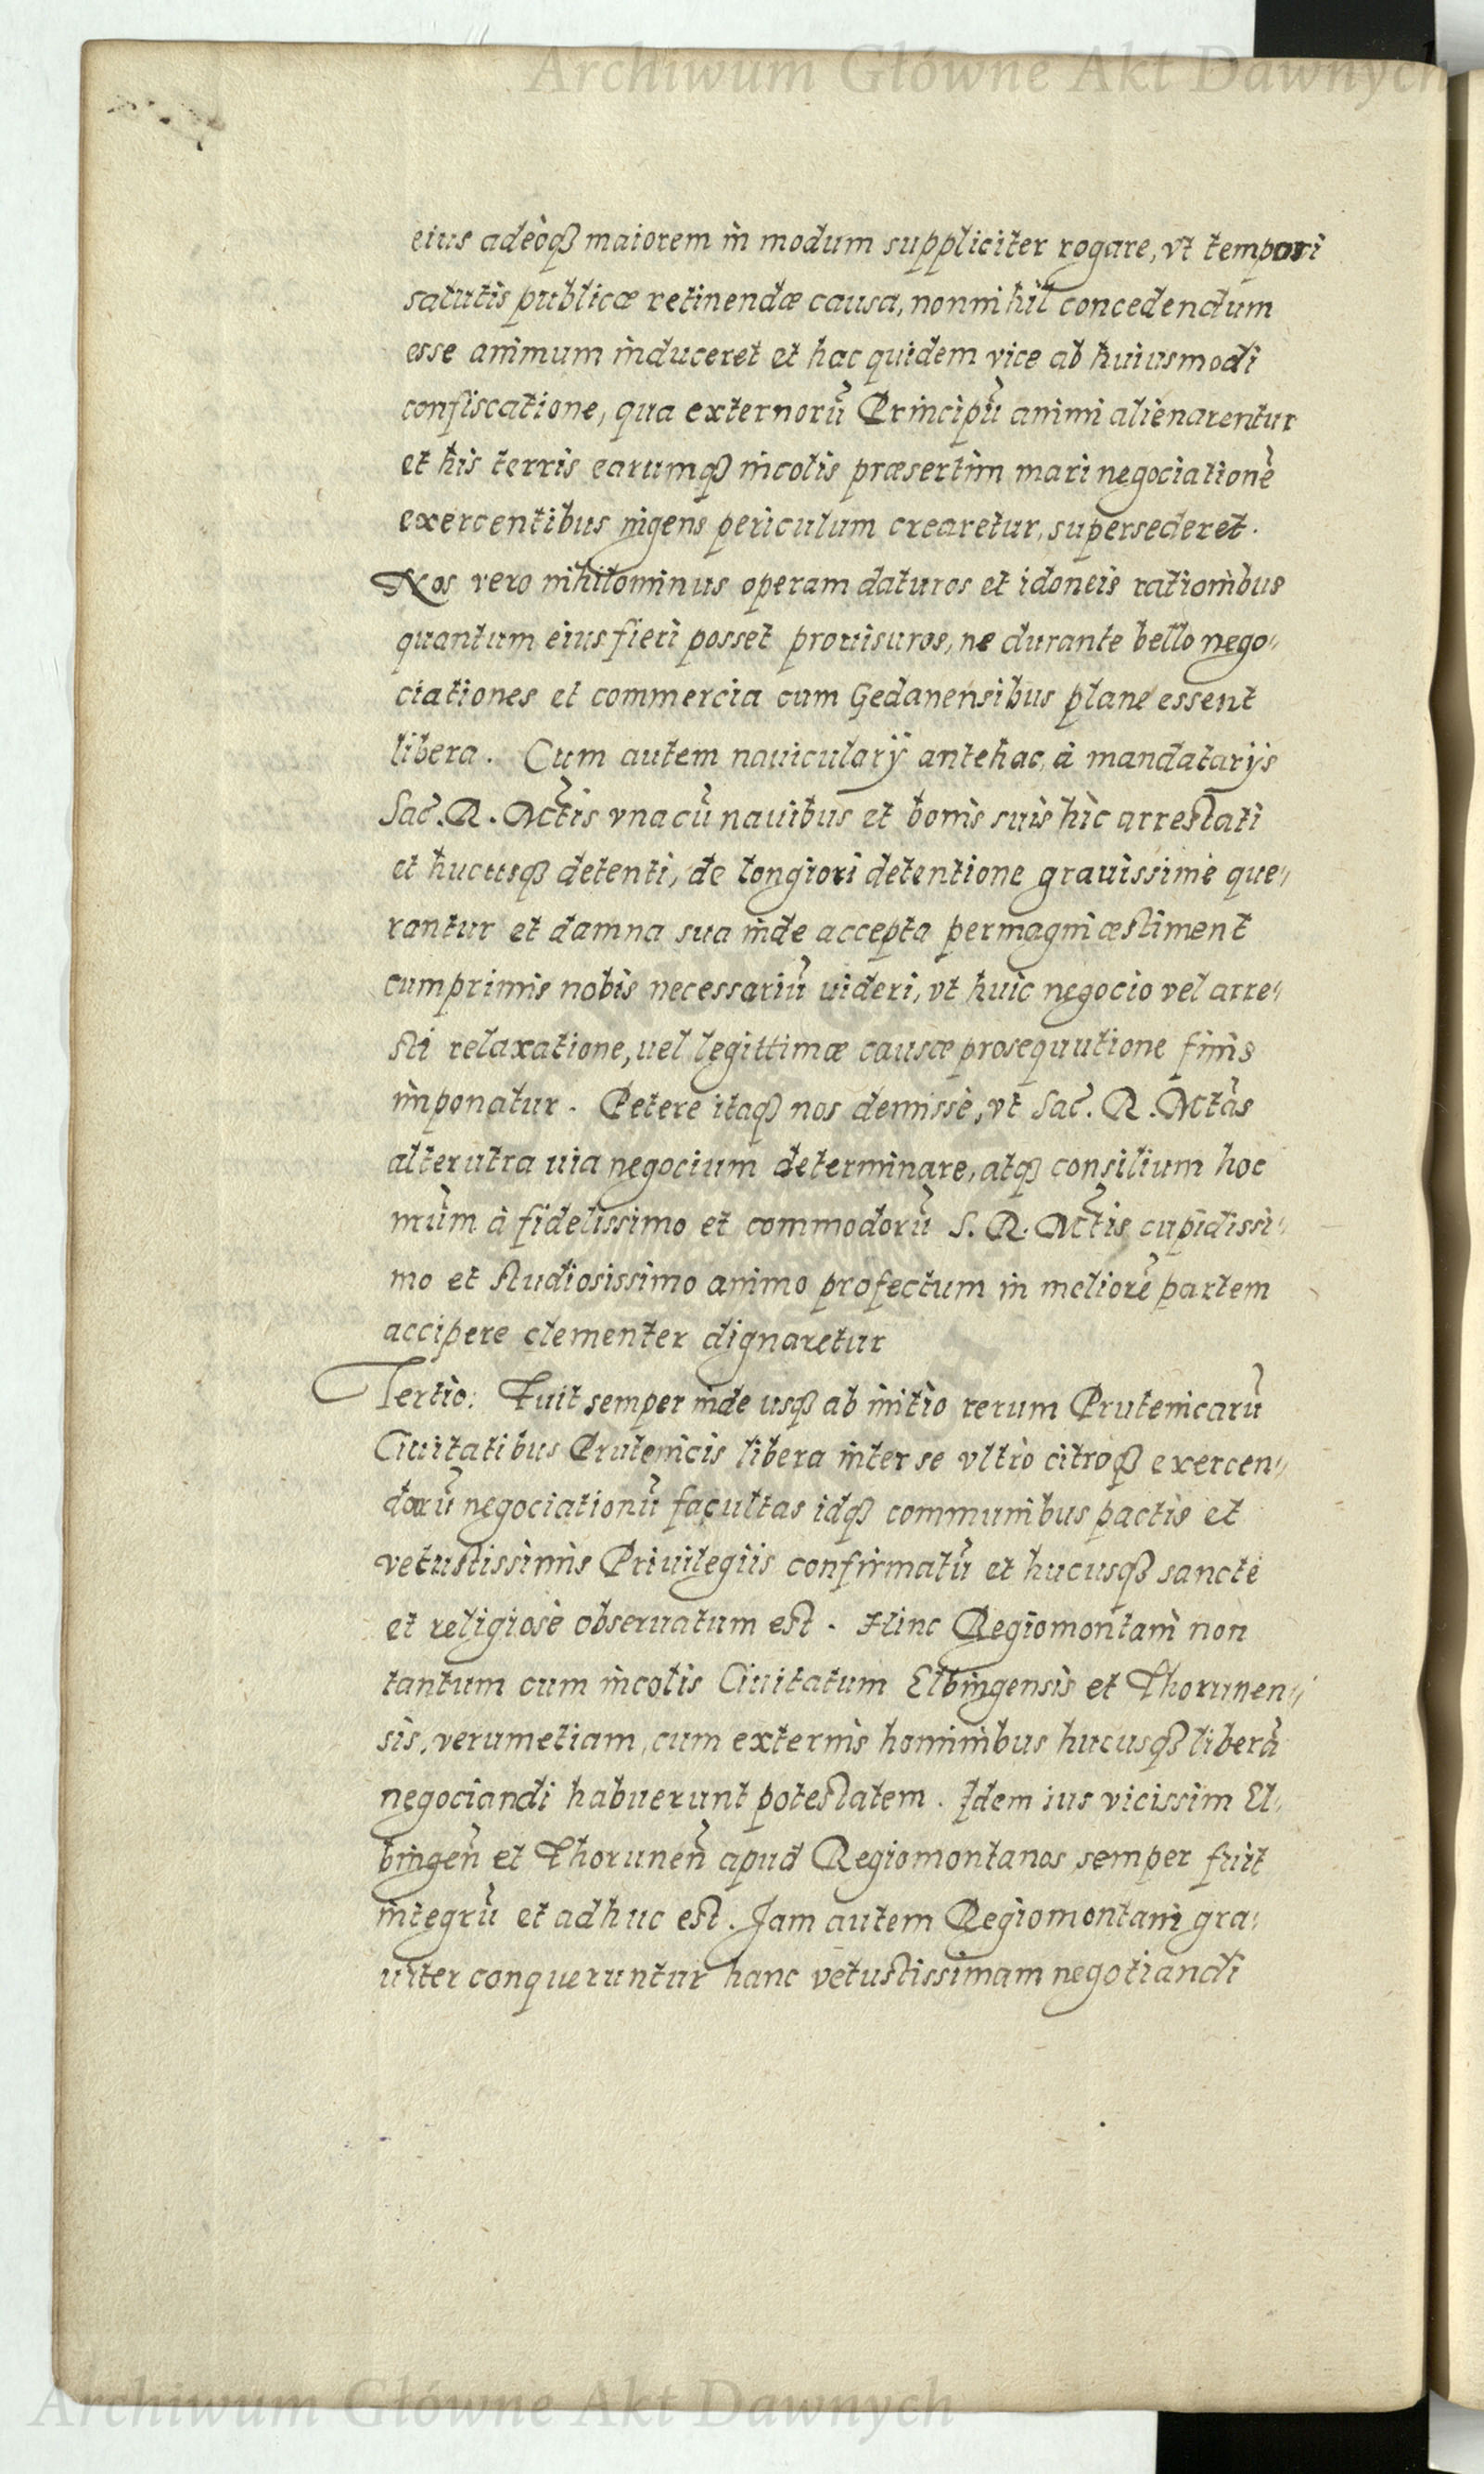 Archiwum Główne Akt Dawnych
eius adeòqꝫ maiorem in modum suppliciter rogare, vt tempori
salutis publicæ retinendæ causa, nonnihil concedendum
esse animum induceret et hac quidem vice ab huiusmodi
confiscatione, qua externorū Principū animi alienarentur
et his terris earumqꝫ incolis præsertim mari negociationē
exercentibus ingens periculum crearetur, supersederet.
Nos vero nihilominus operam daturos et idoneis rationibus
quantum eius fieri posset prouisuros, ne durante bello nego„
ciationes et commercia cum Gedanensibus plane essent
libera. Cum autem nauicularij antehac, à mandatarijs
Sac. R. Mtis vna cū nauibus et bonis suis hic arrestati
et hucusqꝫ detenti, de longiori detentione grauissime que„
rantur et damna sua inde accepta permagni æstiment
cumprimis nobis necessariū uideri, vt huic negocio vel arre„
sti relaxatione, uel legittimæ causæ prosequutione finis
imponatur. Petere itaqꝫ nos demissè, vt Sac. R. Mtas
alterutra uia negocium determinare, atqꝫ consilium hoc
nrūm à fidelissimo et commodorū S. R. Mtis cupidissi„
mo et studiosissimo animo profectum in meliorē partem
accipere clementer dignaretur
Tertiò: Fuit semper inde usqꝫ ab initio rerum Prutenicarū
Ciuitatibus Prutenicis libera inter se vltrò citroqꝫ exercen„
dorū negociationū facultas idqꝫ communibus pactis et
vetustissimis Priuilegiis confirmatū et hucusqꝫ sanctè
et religiosè obseruatum est. Hinc Regiomontani non
tantum cum incolis Ciuitatum Elbingensis et Thorunen„
sis, verumetiam, cum externis hominibus hucusqꝫ liberā
negociandi habuerunt potestatem. Idem ius vicissim El„
bingeñ et Thoruneñ apud Regiomontanos semper fuit
integrū et adhuc est. Jam autem Regiomontani gra„
uiter conqueruntur hanc vetustissimam negotiandi
Archiwum Główne Akt Dawnych